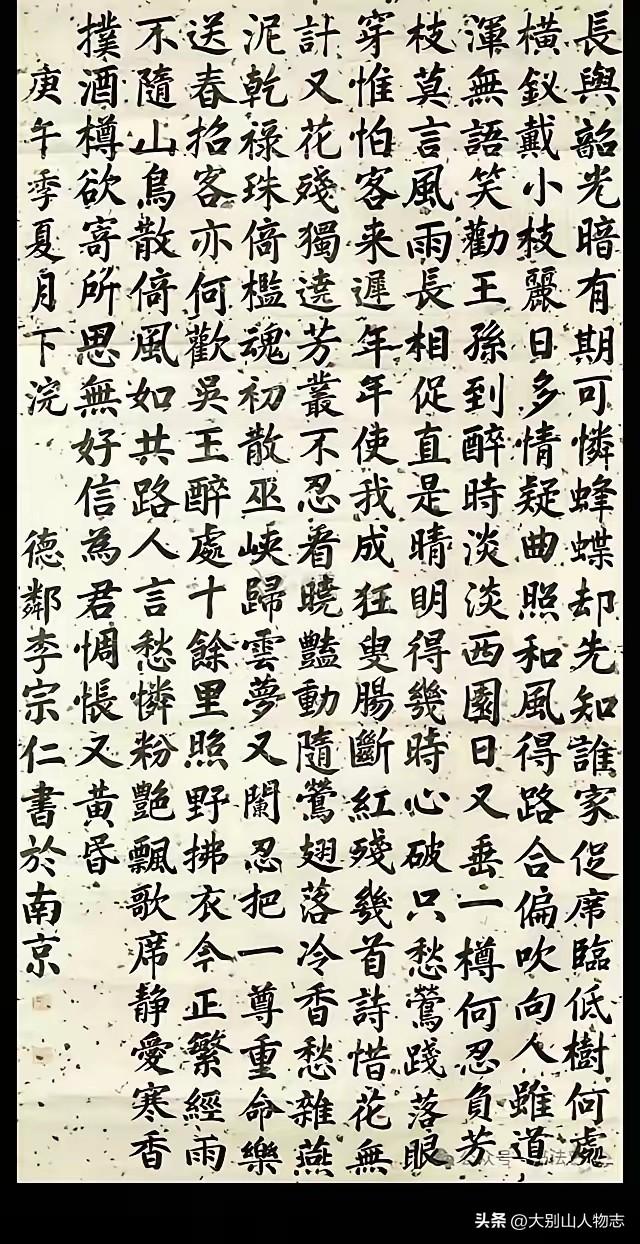 長與韶光暗有期可憐蜂蝶却先知誰家促席臨低樹何處
橫釵戴小枝麗日多情疑曲照和風得路合偏吹向人雖道
渾無語笑勸王孫到醉時淡淡西園日又垂一樽何忍負芳
枝莫言風雨長相促直是晴明得幾時心破只愁鶯踐落眼
穿惟怕客来遲年年使我成狂叟腸斷紅殘幾首詩惜花無
計又花殘獨遶芳叢不忍看曉豔動隨鶯翅落冷香愁雜燕
泥乾祿珠倚檻魂初散巫峽歸雲夢又闌忍把一尊重命樂
送春招客亦何歡吳王醉處十餘里照野拂衣今正繁經雨
不隨山鳥散倚風如共路人言愁憐粉艷飄歌席静愛寒香
撲酒樽欲寄所思無好信為君惆悵又黃昏
庚午季夏月下浣 德鄰李宗仁書於南京
头条 @大别山人物志